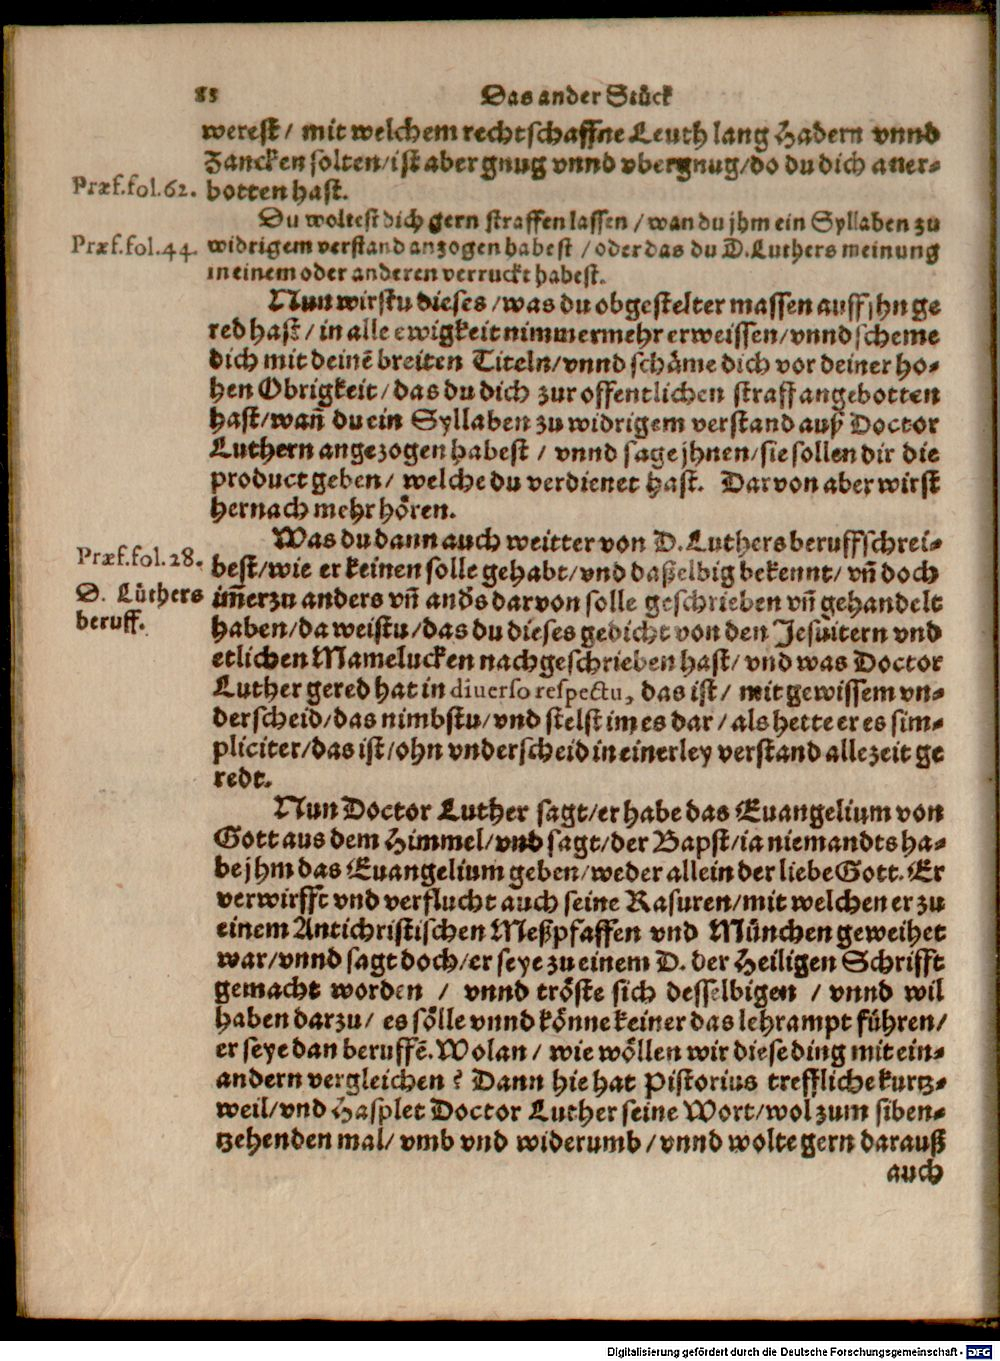 83 Das ander Stück
werest / mit welchem rechtschaffne Leuth lang Hadern vnnd
Zancken solten/ist aber gnug vnnd vbergnug/do du dich aner-
Præf.fol.62. botten hast.
Du woltest dich gern straffen lassen / wan du jhm ein Syllaben zu
Præf.fol.44. widrigem verstand anzogen habest / oder das du D.Luthers meinung
in einem oder anderen verruckt habest.
Nun wirstu dieses / was du obgestelter massen auff jhn ge
red hast / in alle ewigkeit nimmermehr erweissen/vnnd scheme
dich mit deinē breiten Titeln/vnnd schäme dich vor deiner ho-
hen Obrigkeit / das du dich zur offentlichen straff angebotten
hast/wañ du ein Syllaben zu widrigem verstand auß Doctor
Luthern angezogen habest / vnnd sage jhnen/sie sollen dir die
product geben / welche du verdienet hast. Darvon aber wirst
hernach mehr hören.
Was du dann auch weitter von D. Luthers beruff schrei-
Præf.fol.28. best/wie er keinen solle gehabt/vnd daßelbig bekennt/ vñ doch
D. Lůthers im̃erzu anders vñ anďs darvon solle geschrieben vñ gehandelt
beruff. haben/da weistu/das du dieses gedicht von den Jesuitern vnd
etlichen Mamelucken nachgeschrieben hast/ vnd was Doctor
Luther gered hat in diuerso respectu, das ist / mit gewissem vn-
derscheid/das nimbstu/vnd stelst im es dar / als hette er es sim-
pliciter/das ist/ohn vnderscheid in einerley verstand allezeit ge
redt.
Nun Doctor Luther sagt/er habe das Euangelium von
Gott aus dem Himmel/vnd sagt/der Bapst/ia niemandts ha-
be jhm das Euangelium geben/weder allein der liebe Gott. Er
verwirfft vnd verflucht auch seine Rasuren/mit welchen er zu
einem Antichristischen Meßpfaffen vnd München geweihet
war/vnnd sagt doch/er seye zu einem D. der Heiligen Schrifft
gemacht worden / vnnd tröste sich desselbigen / vnnd wil
haben darzu / es sölle vnnd könne keiner das lehrampt führen/
er seye dan beruffē. Wolan / wie wöllen wir diese ding mit ein-
andern vergleichen? Dann hie hat Pistorius treffliche kurtz-
weil/vnd Hasplet Doctor Luther seine Wort/wol zum siben-
tzehenden mal/ vmb vnd widerumb / vnnd wolte gern darauß
auch
Digitalisierung gefördert durch die Deutsche Forschungsgemeinschaft - DFG